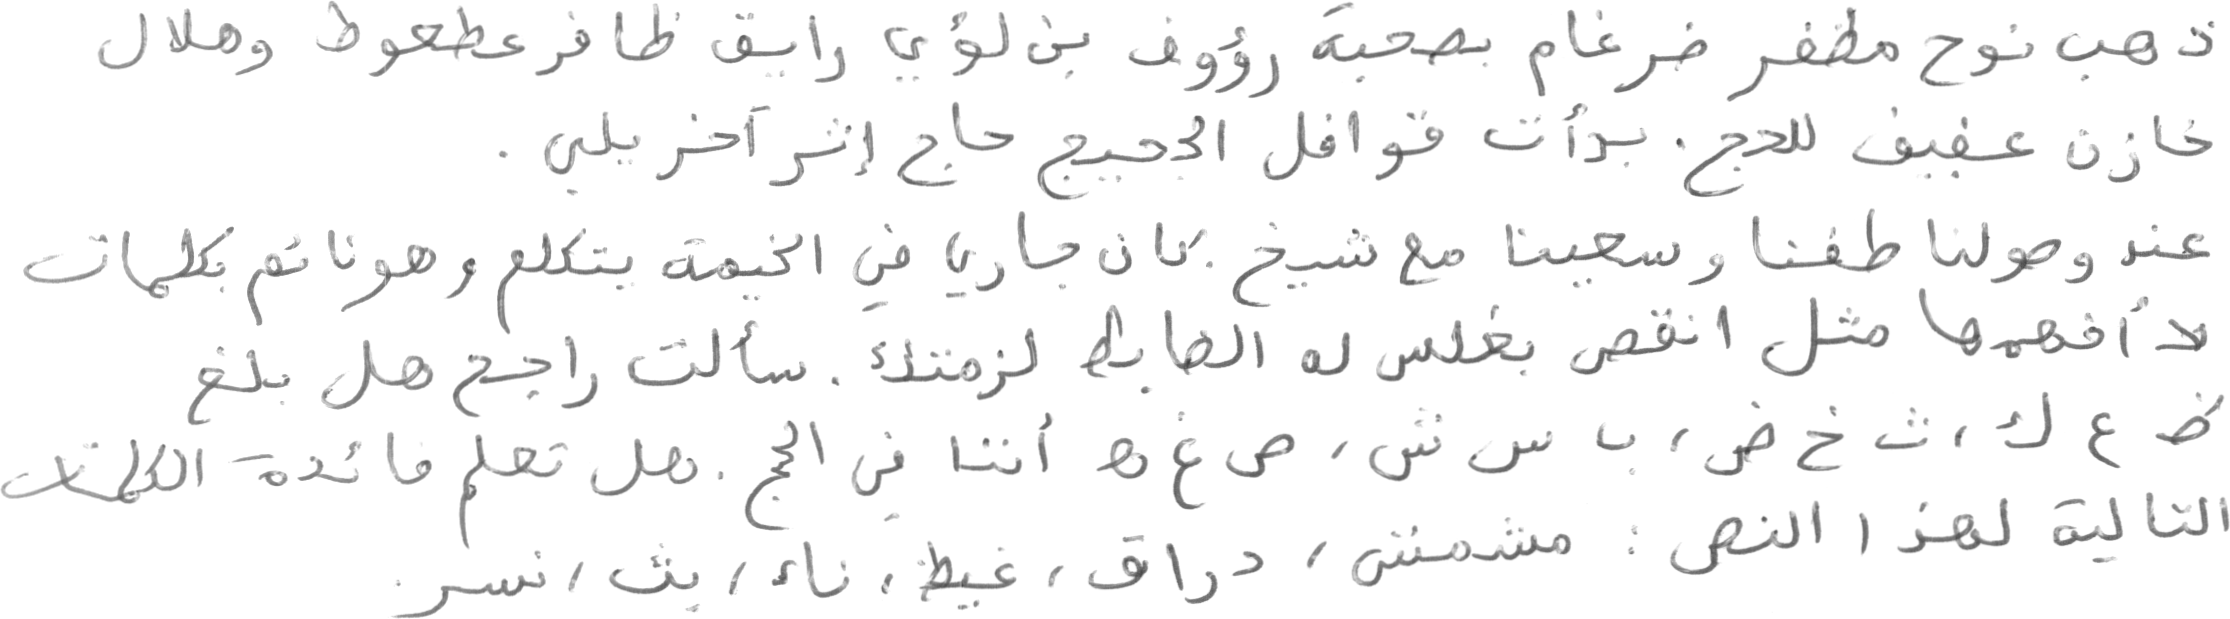 ذهب نوح مظفر ضرغام بصحبة رؤوف بن لؤي رايق ظافر عطعوط وهلال
خازن عفيف للحج. بدأت قوافل الحجيج حاج إثر آخر يلي.
عند وصولنا طفنا وسعينا مع شيخ. كان جاري في الخيمة يتكلم وهو نائم بكلمات
لا أفهمها مثل انقص بغلس له الضابط لزمتك. سألت راجح هل بلغ
ظ ع ك، ث خ ض، ب س ش، ص غ ه أننا في الحج. هل تعلم فائدة الكلمات
التالية لهذا النص: مشمش، دراق، غيظ، ناء، بث، نسر.